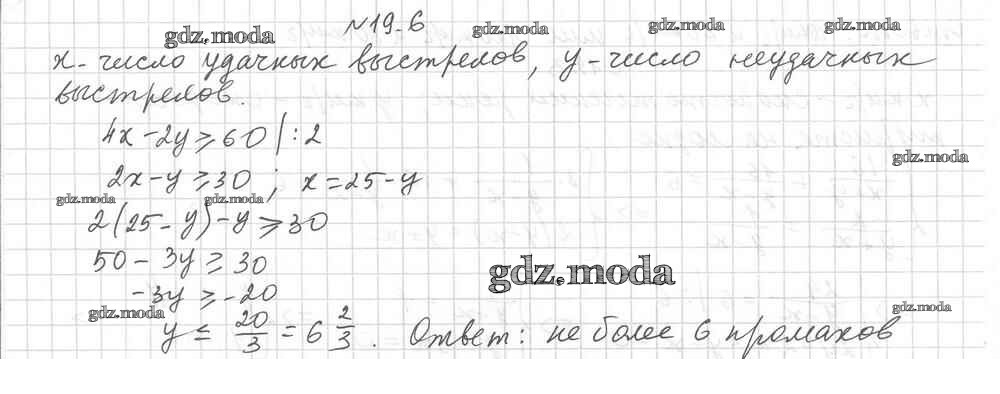 №19.6
gdz.moda gdz.moda gdz.moda
x - число удачных выстрелов, y - число неудачных
выстрелов.
4x - 2y ⩾ 60 | : 2
gdz.moda
2x - y ⩾ 30 ; x = 25 - y
gdz.moda gdz.moda
2(25 - y) - y ⩾ 30
50 - 3y ⩾ 30
gdz.moda
-3y ⩾ -20
gdz.moda gdz.moda
y ≤ 20/3 = 6 2/3 . Ответ: не более 6 промахов